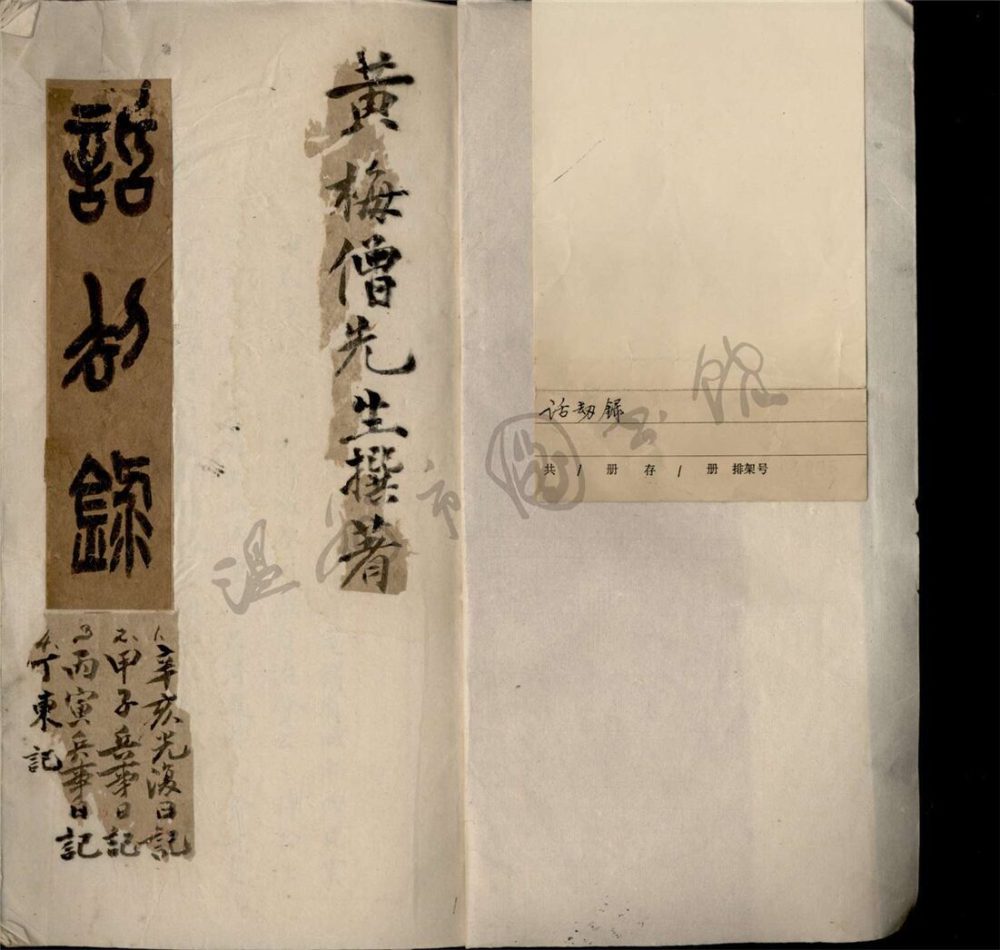 话劫録
共 1 册 存 1 册 排架号
黃梅僧先生撰著
話劫錄
1. 辛亥光復日記
2. 甲子兵事日記
3 丙寅兵事日記
4. 丁東記
温州市图书馆